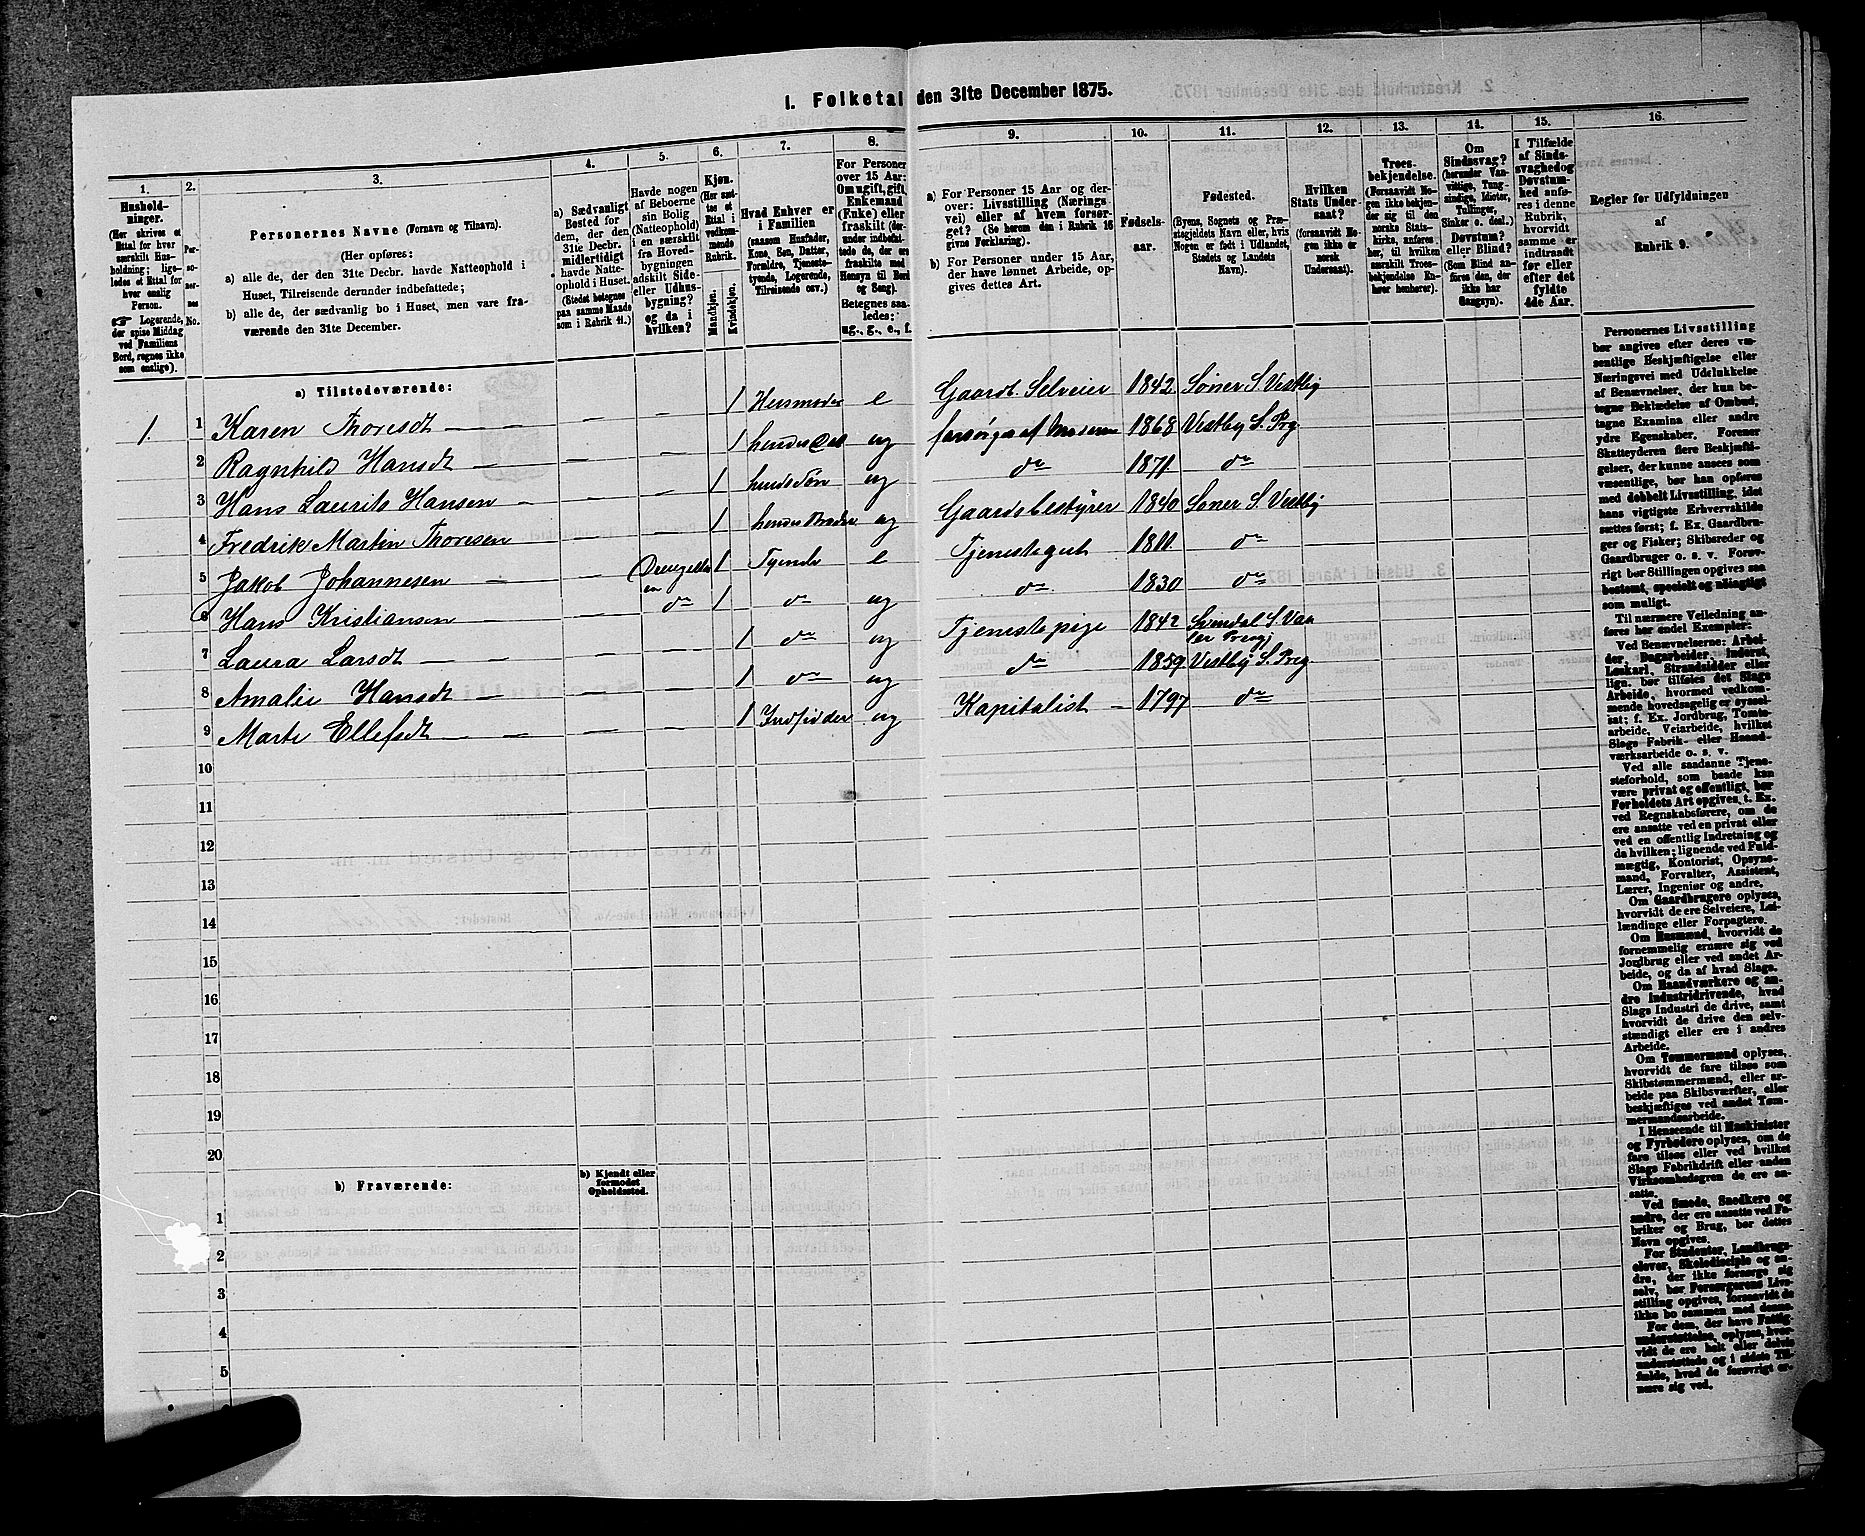 1. Folketal den 31te December 1875.
1. 2. 3. 4. 5. 6. 7. 8. 9. 10. 11. 12. 13. 14. 15. 16.
Husholdninger.
(Her skrives et Ettal for hver særskilt Husholdning; ligeledes et Ettal for hver enslig Person.
Logerende, der spise Middag ved Familiens Bord, regnes ikke som enslige).
Personernes No.
Personernes Navne (Fornavn og Tilnavn).
(Her opføres:
a) alle de, der den 31te Decbr. havde Natteophold i
Huset, Tilreisende derunder indbefattede;
b) alle de, der sædvanlig bo i Huset, men vare fra-
værende den 31te December.
a) Sædvanligt Bosted for dem, der den 31te Decbr. midlertidigt havde Natteophold i Huset.
(Stedet betegnes paa samme Maade som i Rubrik 11.)
Havde nogen af Beboerne sin Bolig (Natteophold) i en særskilt fra Hovedbygningen adskilt Side- eller Udhusbygning? og da i hvilken?
Kjøn.
(Her sættes et Ettal i vedkommende Rubrik.
Mandkjøn. Kvindekjøn.
Hvad Enhver er i Familien
(saasom Husfader, Kone, Søn, Datter, Forældre, Tjenestetyende, Logerende, Tilreisende osv.)
For Personer over 15 Aar: Om ugift, gift, Enkemand (Enke) eller fraskilt (derunder indbefattede de, der ere fraskilte med Hensyn til Bord og Seng).
Betegnes saaledes:
ug., g., e., f.
a) For Personer 15 Aar og derover: Livsstilling (Næringsvei) eller af hvem forsørget? (Se herom den i Rubrik 16 givne Forklaring).
b) For Personer under 15 Aar, der have lønnet Arbeide, opgives dettes Art.
Fødselsaar.
Fødested.
(Byens, Sognets og Præstegjeldets Navn eller, hvis Nogen er født i Udlandet, Stedets og Landets Navn).
Hvilken Stats Undersaat?
(forsaavidt Nogen ikke er norsk Undersaat).
Troesbekjendelse.
(Forsaavidt Nogen ikke bekjender sig til den norske Statskirke, anføres her, til hvilken særskilt Troesbekjendelse Enhver henhører).
Om Sindssvag?
(herunder Vanvittige, Tungsindige, Idioter, Tullinger, Sinker o. desl.)
Døvstum? eller Blind?
(Som Blind anføres den, der ikke har Gangsyn).
I Tilfælde af Sindssvaghed og Døvstumhed anføres i denne Rubrik, hvorvidt samme er indtraadt før eller efter det fyldte 4de Aar.
Regler for Udfyldningen
af
Rubrik 9.
a) Tilstedeværende:
1. 1 Karen Thoresdt — — — 1 Husmoder e Gaardb. Selveier 1842 Soner S. Vestby
2 Ragnhild Hansdt — — — 1 hendes Dat ug forsørges af Moderen 1868 Vestby S. Prg
3 Hans Laurits Hansen — — — 1 hendes Søn ug do 1871 do
4 Fredrik Martin Thoresen — — 1 hendes Broder ug Gaardsbestyrer 1840 Soner S. Vestby
5 Jakob Johannesen — — 1 Tyende e Tjenestegut 1811 do
6 Hans Kristiansen — do 1 do ug do 1830 do
7 Laura Larsdt — — — 1 do ug Tjenestepige 1842 Svindal S. Vaa
ler Pregj
8 Amalie Hansdt — — — 1 do ug do 1859 Vestby S. Preg
9 Marte Ellefsdt — — — 1 Indsidder ug Kapitalist — 1797 do
10
11
12
13
14
15
16
17
18
19
20
b) Fraværende:
b) Kjendt eller formodet Opholdssted.
1
2
3
4
5
Personernes Livsstilling
bør angives efter deres væ-
sentlige Beskjæftigelse eller
Næringsvei med Udelukkelse
af Benævnelser, der kun be-
tegne Beklædelse af Ombud,
tagne Examina eller andre
ydre Egenskaber. Forener
Skatteyderen flere Beskjæfti-
gelser, der kunne ansees som
væsentlige, bør han opføres
med dobbelt Livsstilling, idet
hans vigtigste Erhvervskilde
sættes først; f. Ex. Gaardbru-
ger og Fisker; Skibsreder og
Gaardbruger o. s. v. Forøv-
rigt bør Stillingen opgives saa
bestemt, specielt og nøiagtigt
som muligt.
Til nærmere Veiledning an-
føres her endel Exempler:
Ved Benævnelserne: Arbei-
der, Dagarbeider, Inderst,
Løskarl, Strandsidder eller
lign. bør tilføies det Slags
Arbeide, hvormed vedkom-
mende hovedsagelig er syssel-
sat; f. Ex. Jordbrug, Tomte-
arbeide, Veiarbeide, hvilket
Slags Fabrik- eller Haand-
værksarbeide o. s. v.
Ved alle saadanne Tjene-
steforhold, som baade kan
være privat og offentligt, bør
Forholdets Art opgives, t. Ex.
ved Regnskabsførere, om de
ere ansatte ved en privat eller
ved en offentlig Indretning og
da hvilken; lignende ved Fuld-
mægtig, Kontorist, Opsyns-
mand, Forvalter, Assistent,
Lærer, Ingeniør og andre.
Om Gaardbrugere oplyses,
hvorvidt de ere Selveiere, Lei-
lændinge eller Forpagtere.
Om Husmænd, hvorvidt de
fornemmelig ernære sig ved
Jordbrug eller ved andet Ar-
beide, og da af hvad Slags.
Om Haandværkere og an-
dre Industridrivende, hvad
Slags Industri de drive, samt
hvorvidt de drive den selv-
stændigt eller ere i andres
Arbeide.
Om Tømmermænd oplyses,
hvorvidt de fare tilsøs som
Skibstømmermænd, eller ar-
beide paa Skibsværfter, eller
beskjæftiges ved andet Tøm-
mermandsarbeide.
I Henseende til Maskinister
og Fyrbødere oplyses, om de
fare tilsøs eller ved hvilket
Slags Fabrikdrift eller anden
Virksomhedsgren de ere an-
satte.
Ved Smede, Snedkere og
andre, der ere ansatte ved Fa-
briker og Brug, bør dettes
Navn opgives.
For Studenter, Landbrugs-
elever, Skoledisciple og an-
dre, der ikke forsørge sig
selv, bør Forsørgerens Livs-
stilling opgives, forsaavidt de
ikke bo sammen med denne.
For dem, der have Fattig-
understøttelse, oplyses, hvor-
vidt de ere helt eller delvis
understøttede og i sidste Til-
fælde, hvad de forøvrigt er-
nære sig ved.